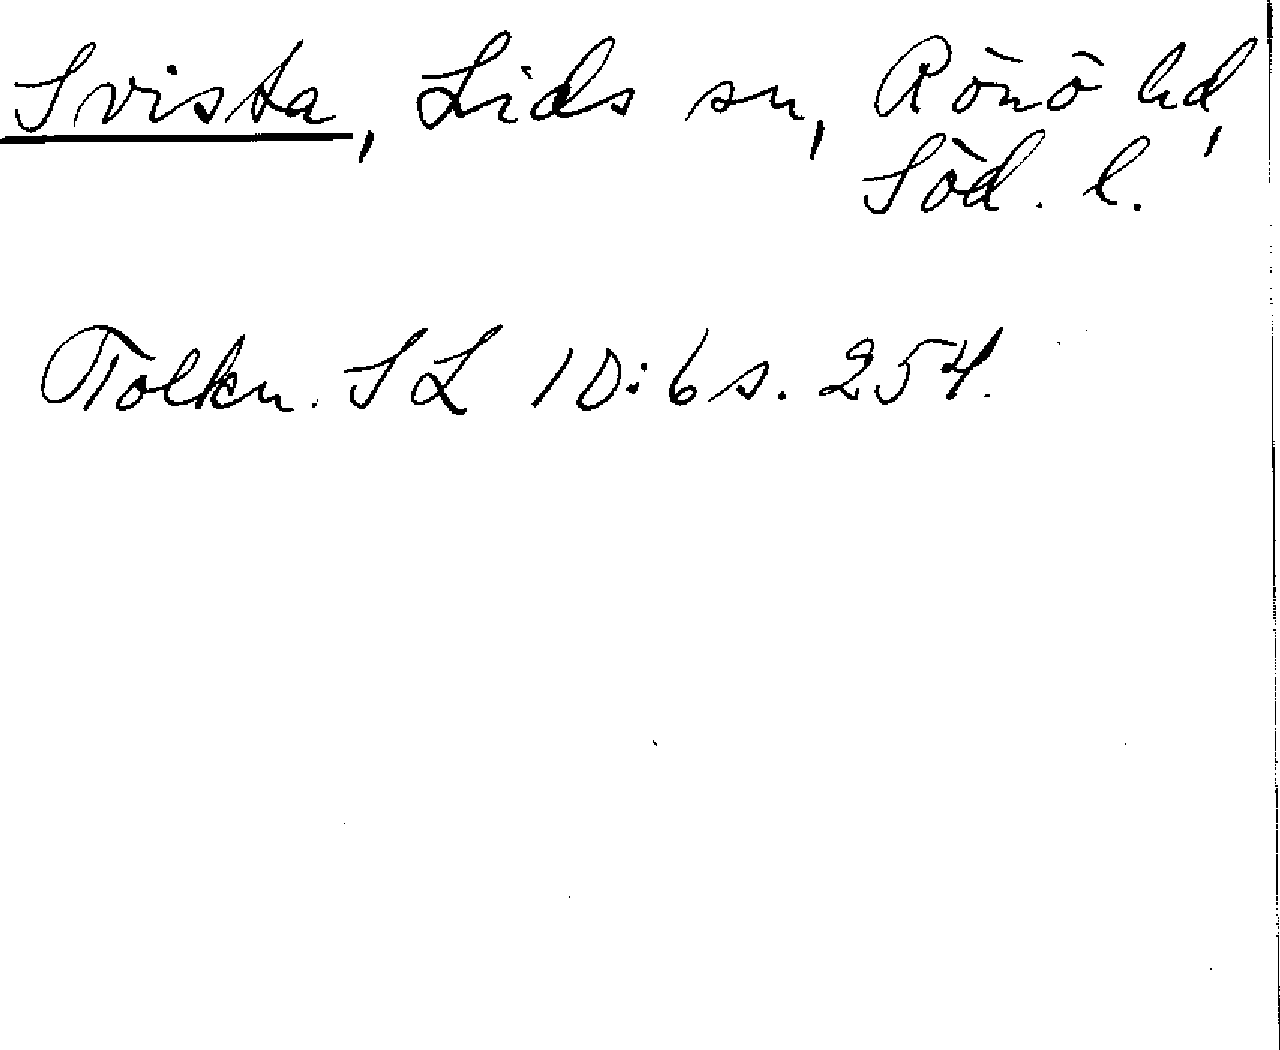 Svista, Lids sn, Rönö hd,
Söd. l.
Tolkn. SL 10:6 s. 254.